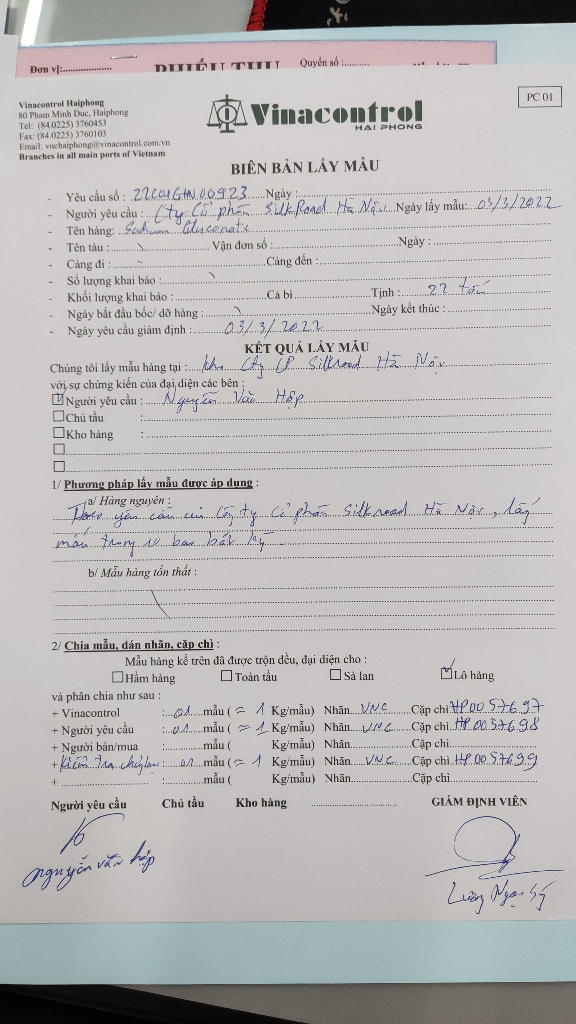 Đơn vị:
PHIẾU THU
Quyển số :
Vinacontrol Haiphong
80 Pham Minh Duc, Haiphong
Tel: (84.0225) 3760453
Fax: (84.0225) 3760103
Email: vnchaiphong@vinacontrol.com.vn
Branches in all main ports of Vietnam
Vinacontrol
HAI PHONG
PC 01
BIÊN BẢN LẤY MẪU
- Yêu cầu số : 22C01GHN00923 Ngày :
- Người yêu cầu : Cty Cổ phần SilkRoad Hà Nội Ngày lấy mẫu: 03/3/2022
- Tên hàng: Sodium Gluconate
- Tên tàu : Vận đơn số : Ngày :
- Cảng đi : Cảng đến :
- Số lượng khai báo :
- Khối lượng khai báo : Cả bì Tịnh : 22 tấn
- Ngày bắt đầu bốc/ dỡ hàng : Ngày kết thúc :
- Ngày yêu cầu giám định : 03/3/2022
KẾT QUẢ LẤY MẪU
Chúng tôi lấy mẫu hàng tại : kho Cty CP Silkroad Hà Nội
với sự chứng kiến của đại diện các bên :
Người yêu cầu : Nguyễn Văn Hộp
Chủ tầu :
Kho hàng :
1/ Phương pháp lấy mẫu được áp dụng :
a/ Hàng nguyên :
Theo yêu cầu của Công ty Cổ phần Silkroad Hà Nội, lấy
mẫu trong 10 bao bất kỳ
b/ Mẫu hàng tổn thất :
2/ Chia mẫu, dán nhãn, cặp chì :
Mẫu hàng kể trên đã được trộn đều, đại diện cho :
Hầm hàng Toàn tầu Sà lan Lô hàng
và phân chia như sau :
+ Vinacontrol : 01 mẫu ( ≈ 1 Kg/mẫu) Nhãn VNC Cặp chì HP0057697
+ Người yêu cầu : 01 mẫu ( ≈ 1 Kg/mẫu) Nhãn VNC Cặp chì HP0057698
+ Người bán/mua : mẫu ( Kg/mẫu) Nhãn Cặp chì
+ Kiểm tra chất lượng : 01 mẫu ( ≈ 1 Kg/mẫu) Nhãn VNC Cặp chì HP0057699
+ : mẫu ( Kg/mẫu) Nhãn Cặp chì
Người yêu cầu Chủ tầu Kho hàng GIÁM ĐỊNH VIÊN
nguyễn văn hộp
Lương Ngọc Sỹ